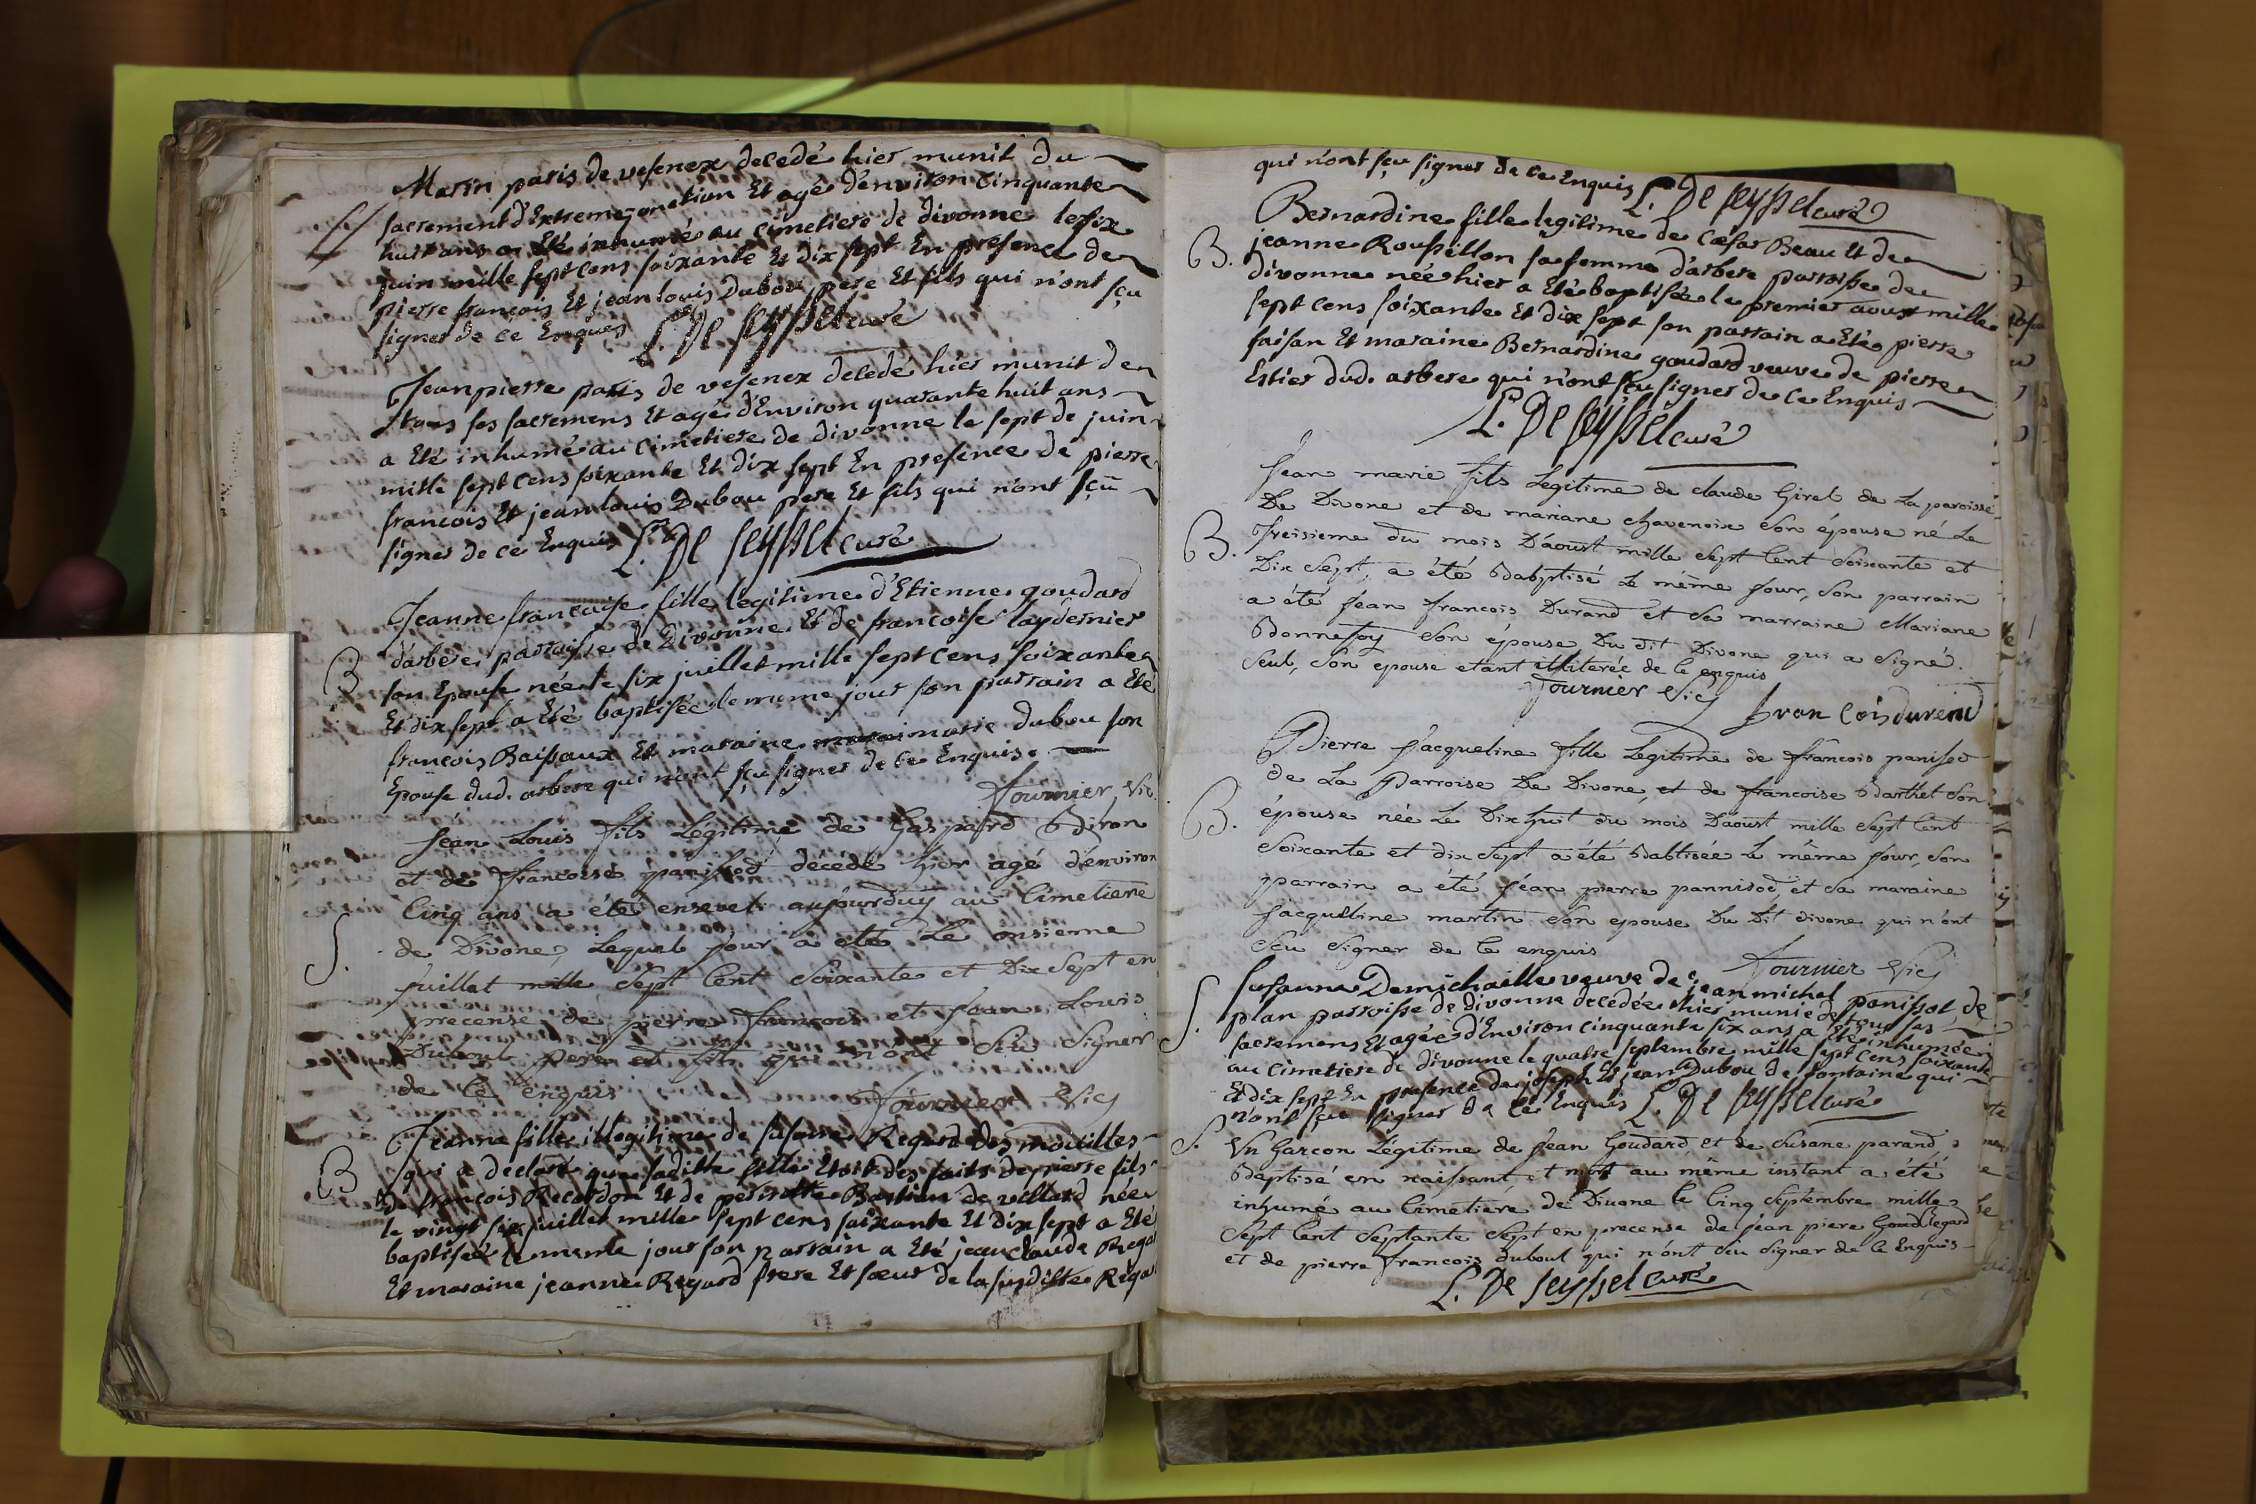 Marin paris de vesenex decedé hier munit du
S/ sacrement d'Extremeonction Et agé d'environ cinquante
huit ans a Eté inhumé au cimetiere de divonne le six
juin mille sept cens soixante Et dix sept En presence de
pierre françois Et jean louis Dubou pere Et fils qui n'ont sçu
signer de ce Enques L. De seyssel curé
Jean pierre paris de vesenex decedé hier munit de
tous ses sacremens Et agé d'Environ quarante huit ans
a Eté inhumé au cimetiere de divonne le sept de juin
mille sept cens soixante Et dix sept En presence de pierre
francois Et jean louis Dubou pere Et fils qui n'ont sçu
signer de ce Enquis L. De seyssel curé
Jeanne francoise fille legitime d'Etienne goudard
d'arbere parroisse de Divonne Et de francoise laydernier
B son Epouse née le six juillet mille sept cens soixante
Et dix sept a Eté baptisée le meme jour son parrain a Eté
francois Baisaux Et maraine marie dubou son
Epouse dud. arbere qui n'ont sçu signer de ce Enquis.
Fournier Vic.
Jean Louis fils Légitime de Gaspard Biron
et de francoise panissod décédé hier agé d'environ
Cinq ans a été enseveli aujourduy au Cimetiere
S. de Divone, Lequel jour a été Le onsieme
juillet mille Sept Cent Soixante et Dix Sept en
precense de pierre francois et Jean Louis
Dubout pere et fils qui n'ont Scu Signer
de Ce enquis Fournier Vic
Jeanne fille illegitime de susanne Regard des mouilles
B qui a declaré que sa ditte fille Etoit des faits de pierre fils
de françois Recordon Et de pernette Bastian de villard née
le vingt six juillet mille sept cens soixante Et Dix sept a Eté
baptisée le meme jour son parrain a Eté jean claude Rega
Et maraine jeanne Regard frere Et sœur de la susditte Rega
qui n'ont sçu signer de ce Enquis L. De seyssel curé
Bernardine fille legitime de Cæsar Beau Et de
B. jeanne Roussellon sa femme d'arbere parroisse de
divonne née hier a Eté baptisée le premier aoust mille
sept cens soixante Et dix sept son parrain a Eté pierre
faisan Et maraine Bernardine goudard veuve de pierre
Estier dud. arbere qui n'ont sçu signer de ce Enquis
L. De seyssel curé
Jean marie fils Legitime de claude Girel de La paroisse
De Divone et de mariane chavenoix Son épouse né Le
B. Treisieme du mois D'aoust mille Sept Cent Soixante et
Dix Sept, a été Babptisé Le même jour, Son parrain
a été Jean francois Durand et Sa marraine Mariane
Bonnefoy Son épouse Du dit Divone qui a Signé.
Seul, Son epouse etant illiterée de Ce enquis
Fournier Vic fran cois durend
Pierre Jacqueline fille Legitime de francois panisod
de La Parroise De Divone, et de francoise Barthet Son
B. épouse née Le Dix huit du mois Daoust mille Sept Cent
Soixante et dix Sept a été Babtisée Le même jour, Son
parrain a été Jean pierre pannisod et Sa maraine
Jacqueline martin Son epouse Du Dit divone qui n'ont
Scu Signer de Ce enquis Fournier Vic
Susanne Demichaille veuve de jean michel panissot de
S. plan parroisse de divonne decedée hier munie de tous ses
sacremens Et agée d'Environ cinquante six ans a Eté inhumée
au cimetiere de divonne le quatre septembre mille sept cens soixante
Et dix sept En presence de joseph Et jean Dubou de fontaine qui
n'ont sçu signer de ce Enquis L. De seyssel curé
S. Un Garcon Légitime de Jean Goudard et de Susane parand
Baptisé en naissant et mort au même instant a été
inhumé au Cimetiere de Divone le Cinq Septembre mille
Sept Cent Septante Sept en precense de jean piere Goud
et de pierre francois dubout qui n'ont scu Signer de Ce Enquis
L. De seyssel curé